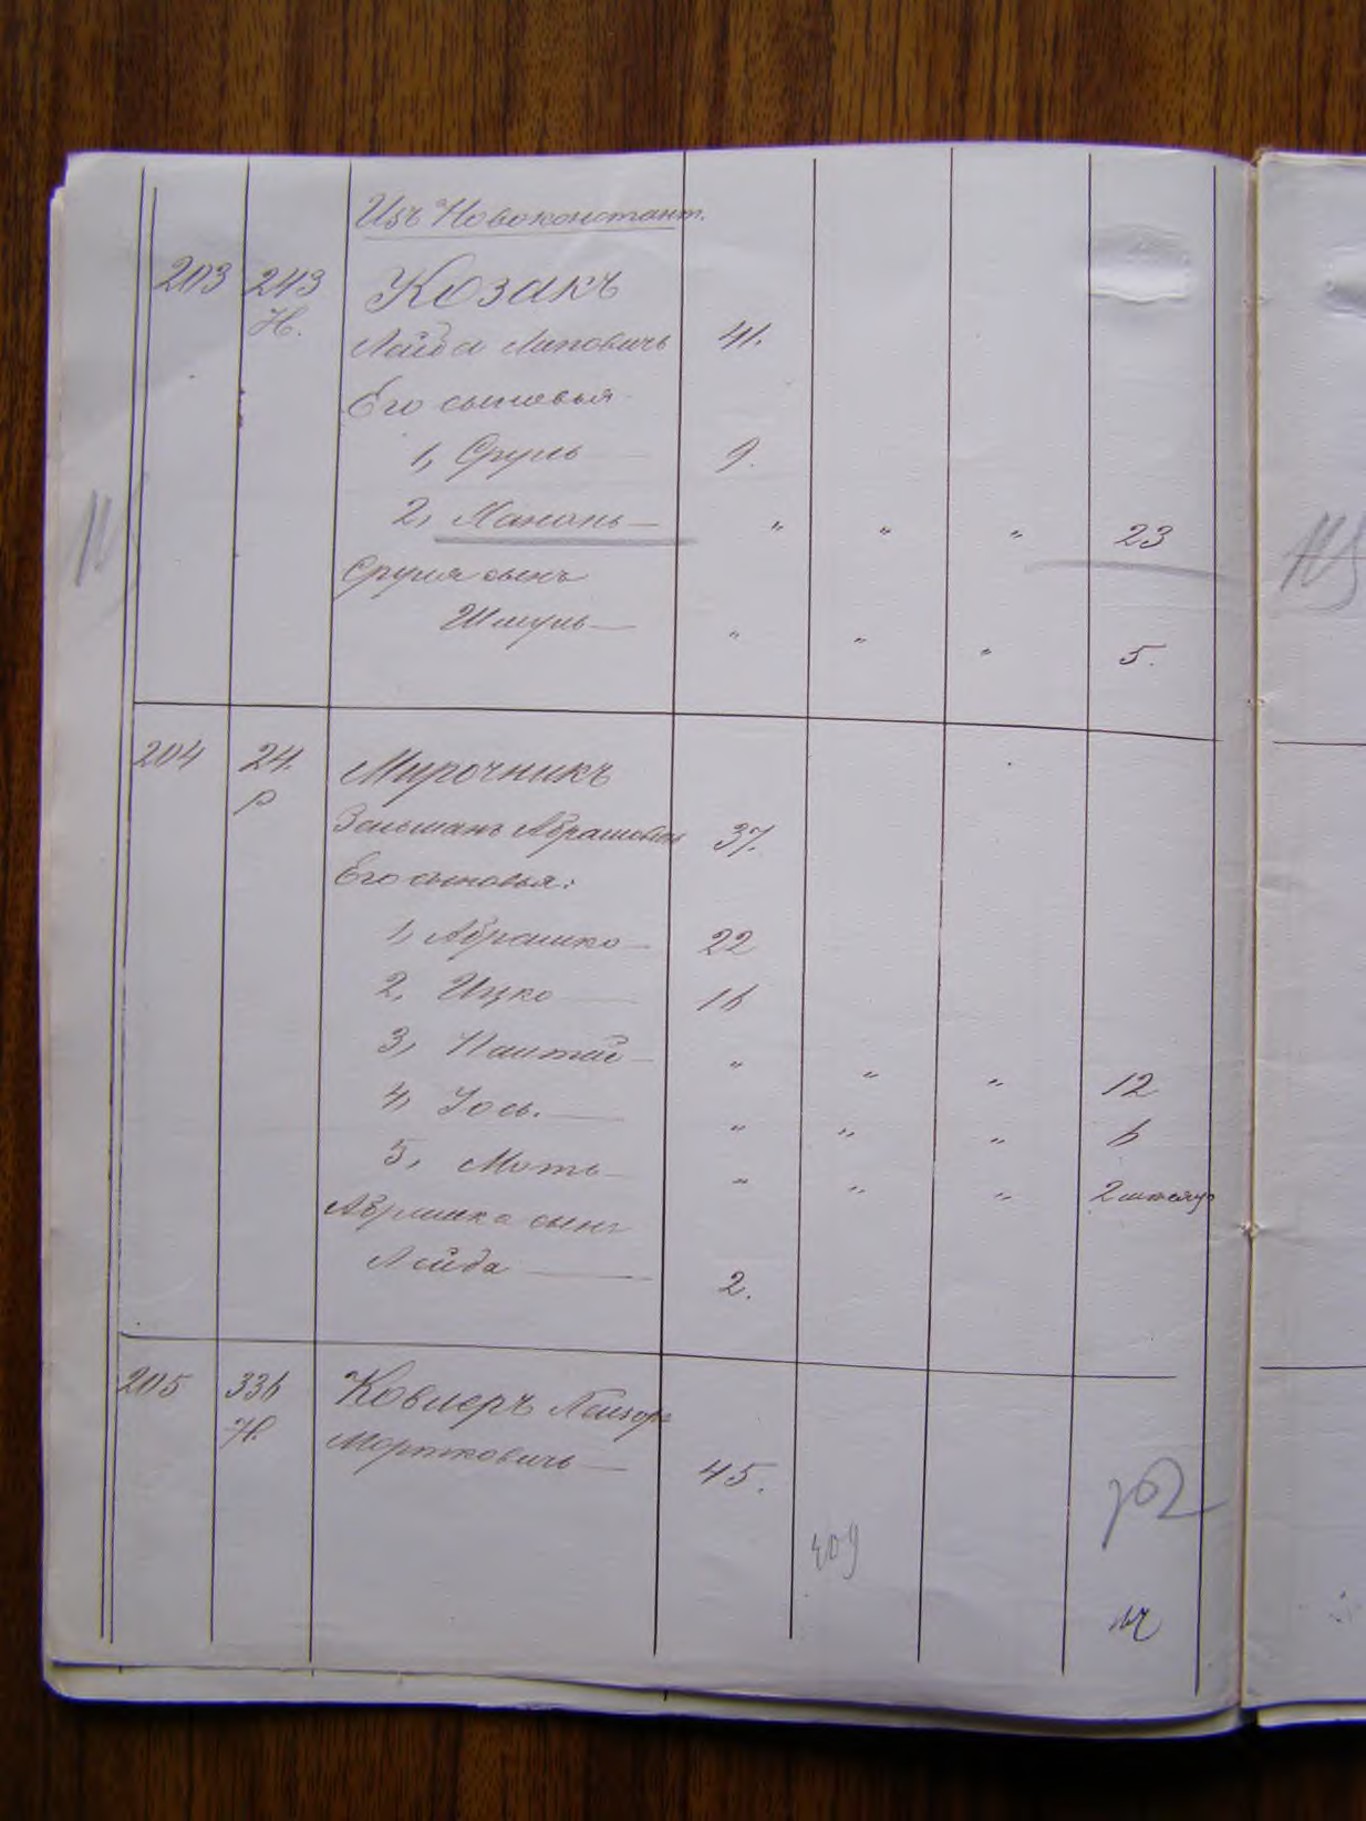 Изъ Новоконстант.
203 243 Козакъ
Н.
Лейба Липовичъ 41.
Его сыновья
1, Сруль — 9.
2, Ханонъ — " " " 23
Сруля сынъ
Шмуль — " " " 5.
204 24. Мирочникъ
Р
Зельманъ Абрашевъ 37.
Его сыновья:
1, Абрашко — 22
2, Ицко — 16
3, — " " " 12
4, Іось. — " " " 6
5, Моть — " " " 2
Абрашка сынъ
Лейба — 2.
205 336 Ковлеръ Лейзоръ
Н.
Мортковичъ — 45.
409